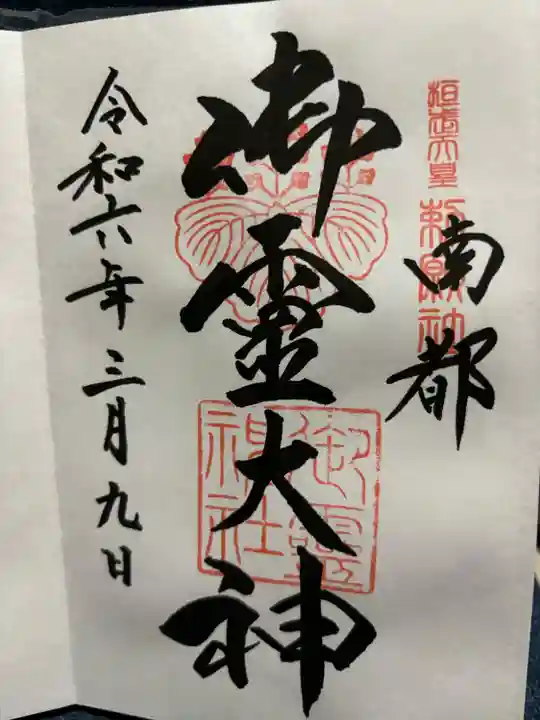 桓武天皇
勅願社
南都
御霊大神
御霊
神社
令和六年三月九日